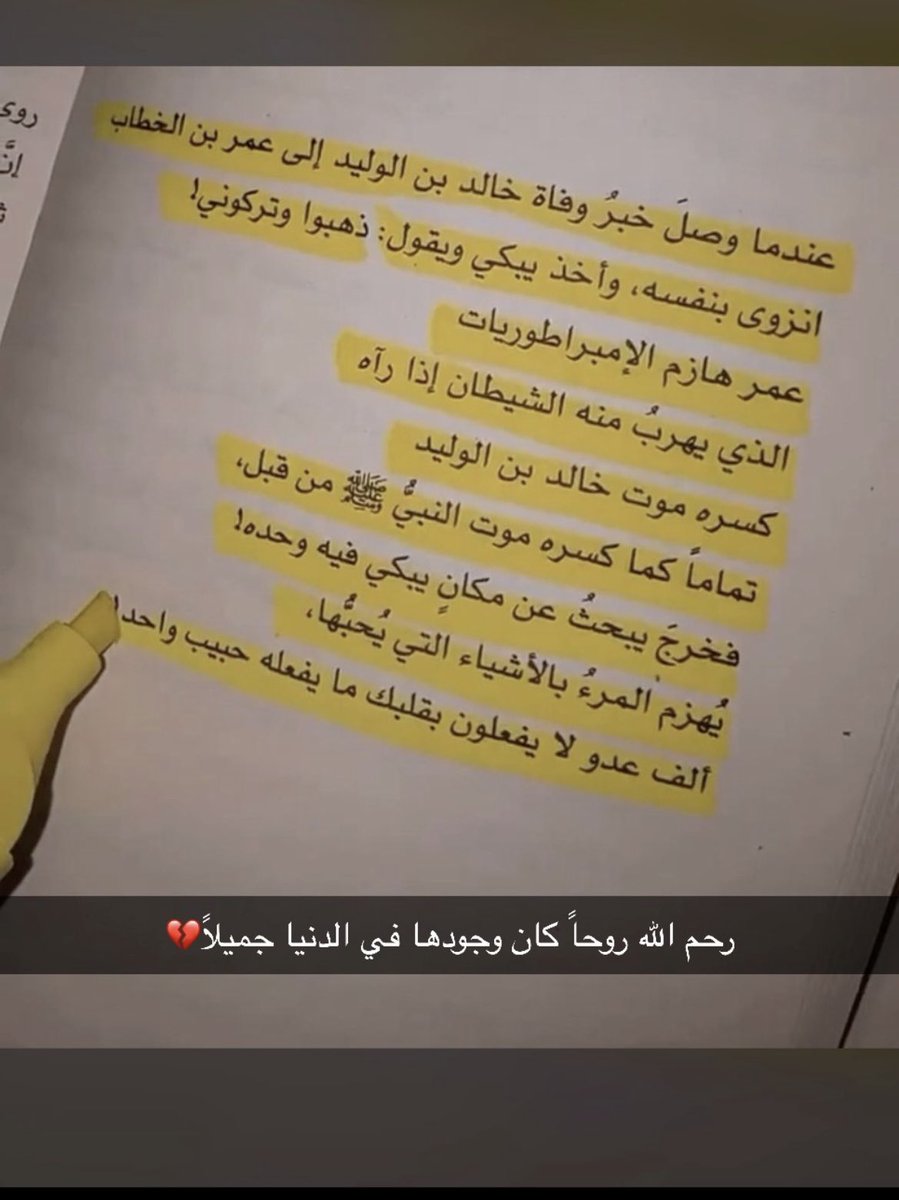 روى
إنَّ
عندما وصلَ خبرُ وفاة خالد بن الوليد إلى عمر بن الخطاب
انزوى بنفسه، وأخذ يبكي ويقول: ذهبوا وتركوني!
عمر هازم الإمبراطوريات
الذي يهربُ منه الشيطان إذا رآه
كسره موت خالد بن الوليد
تماماً كما كسره موت النبيُّ ﷺ من قبل،
فخرجَ يبحثُ عن مكانٍ يبكي فيه وحده!
يُهزم المرءُ بالأشياء التي يُحبُّها،
ألف عدو لا يفعلون بقلبك ما يفعله حبيب واحد!
رحم الله روحاً كان وجودها في الدنيا جميلاً💔